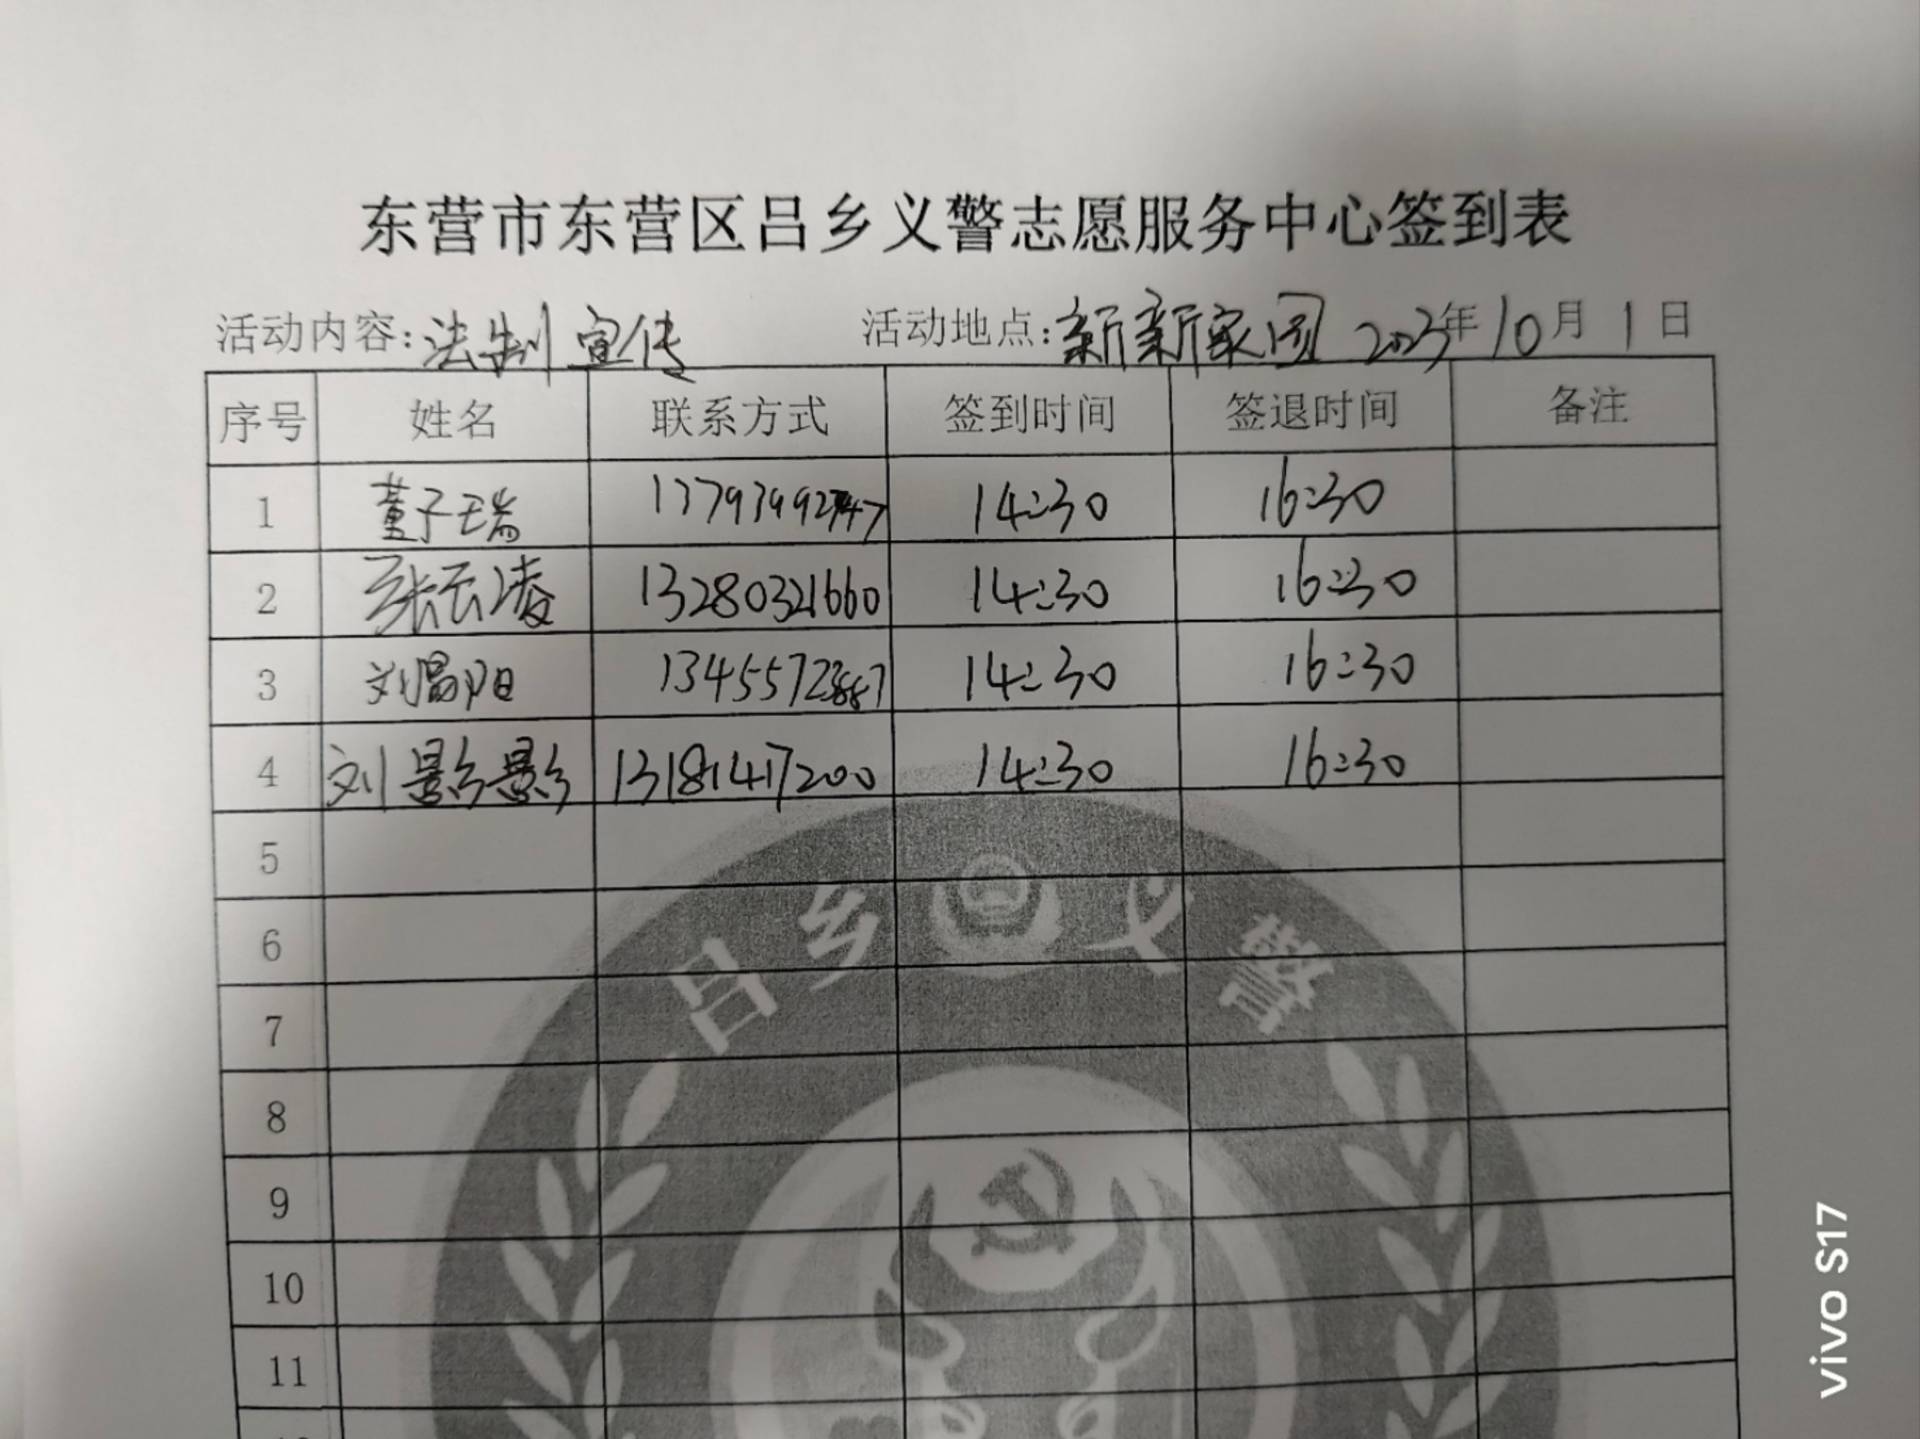 东营市东营区吕乡义警志愿服务中心签到表
活动内容:法制宣传 活动地点:新新家园 2023年10月1日
序号 姓名 联系方式 签到时间 签退时间 备注
1 董子瑞 14:30 16:30
2 张云凌 13280321660 14:30 16:30
3 刘昌阳 14:30 16:30
4 刘影影 13181417200 14:30 16:30
5
6
7
8
9
10
11
吕乡义警
vivo S17